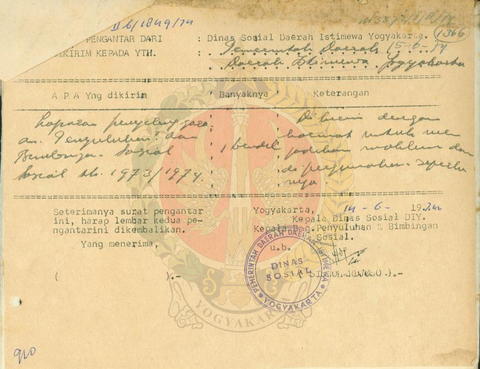 II b/1849/74
PENGANTAR DARI : Dinas Sosial Daerah Istimewa Yogyakarta.
DIKIRIM KEPADA YTH. : Pemerintah Daerah 15-6-74
Daerah Istimewa Yogyakarta
1366
A P A Yng dikirim Banyaknya Keterangan
Laporan penyelenggara
an Penyuluhan dan
Bimbingan Sosial
Sosial th. 1973/1974.
1 bendel
Dikirim dengan
hormat untuk men
jadikan maklum dan
dipergunakan seperlu
nya.
Seterimanya surat pengantar
ini, harap lembar kedua pe-
ngantarini dikembalikan.
Yang menerima,
( )-
Yogyakarta, 14-6-1974
Kepala Dinas Sosial DIY.
Kepala Bag. Penyuluhan & Bimbingan
Sosial.
u.b.
PEMERINTAH DAERAH DAERAH ISTIMEWA
DINAS
SOSIAL
YOGYAKARTA
YOGYAKARTA
910